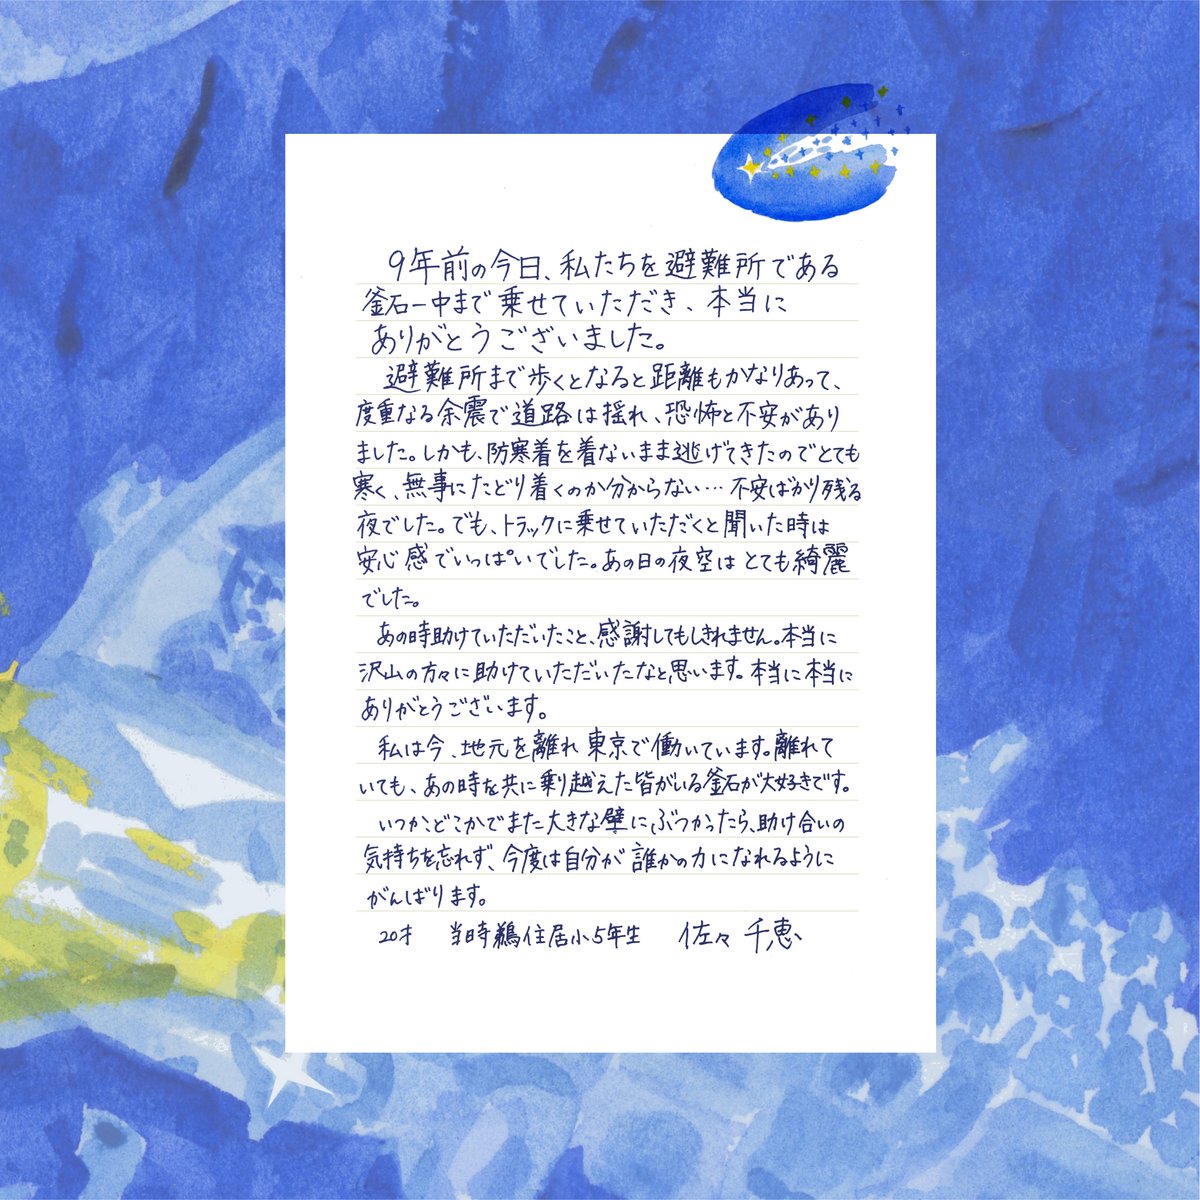 9年前の今日、私たちを避難所である
釜石一中まで乗せていただき、本当に
ありがとうございました。
避難所まで歩くとなると距離もかなりあって、
度重なる余震で道路は揺れ、恐怖と不安があり
ました。しかも、防寒着を着ないまま逃げてきたのでとても
寒く、無事にたどり着くのか分からない…不安ばかり残る
夜でした。でも、トラックに乗せていただくと聞いた時は
安心感でいっぱいでした。あの日の夜空はとても綺麗
でした。
あの時助けていただいたこと、感謝してもしきれません。本当に
沢山の方々に助けていただいたなと思います。本当に本当に
ありがとうございます。
私は今、地元を離れ東京で働いています。離れて
いても、あの時を共に乗り越えた皆がいる釜石が大好きです。
いつか、どこかでまた大きな壁にぶつかったら、助け合いの
気持ちを忘れず、今度は自分が誰かの力になれるように
がんばります。
20才 当時鵜住居小5年生 佐々千恵